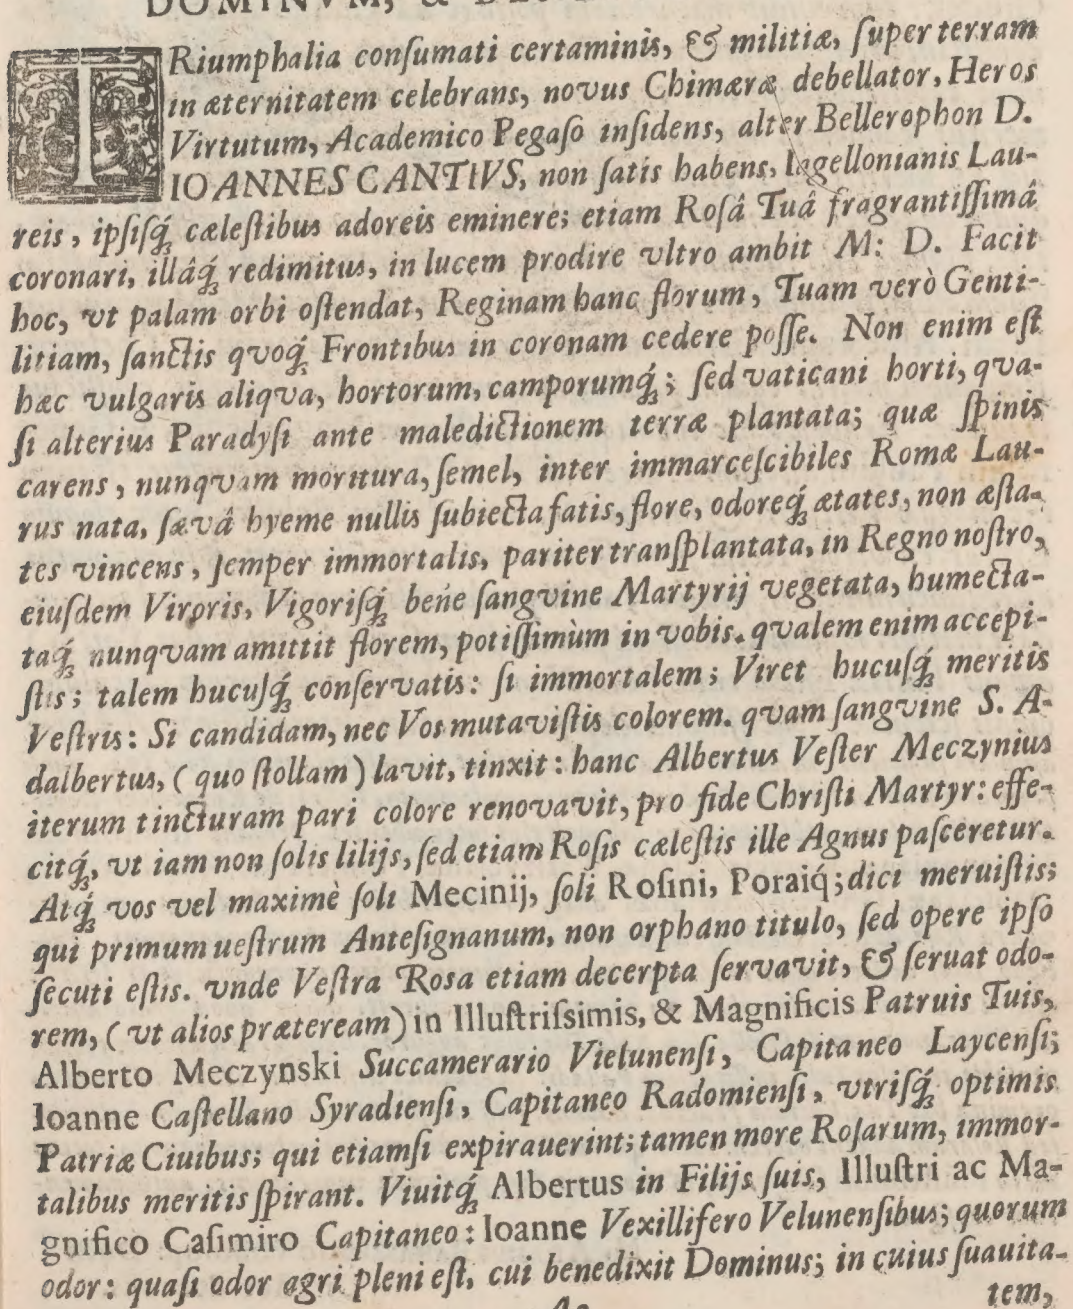 DOMINVM, &
TRiumphalia conſumati certaminis, & militiæ, ſuper terram
in æternitatem celebrans, novus Chimæræ debellator, Heros
Virtutum, Academico Pegaſo inſidens, alter Bellerophon D.
IOANNES CANTIVS, non ſatis habens, Iagellonianis Lau-
reis, ipſiſq́; cæleſtibus adoreis eminere; etiam Roſâ Tuâ fragrantiſſimâ
coronari, illâq́; redimitus, in lucem prodire vltro ambit M: D. Facit
hoc, vt palam orbi oſtendat, Reginam hanc florum, Tuam verò Genti-
litiam, ſanctis quoq́; Frontibus in coronam cedere poſſe. Non enim eſt
hæc vulgaris aliqva, hortorum, camporumq́; ; ſed vaticani horti, qva-
ſi alterius Paradyſi ante maledictionem terræ plantata; quæ ſpinis
carens, nunqvam moritura, ſemel, inter immarceſcibiles Romæ Lau-
rus nata, ſævâ hyeme nullis ſubiecta fatis, flore, odoreq́; ætates, non æſta-
tes vincens, ſemper immortalis, pariter tranſplantata, in Regno noſtro,
eiuſdem Viroris, Vigoriſq́; bene ſangvine Martyrij vegetata, humecta-
taq́; nunqvam amittit florem, potiſſimùm in vobis. qvalem enim accepi-
ſtis; talem hucuſq́; conſervatis: ſi immortalem; Viret hucuſq́; meritis
Veſtris: Si candidam, nec Vos mutaviſtis colorem. qvam ſangvine S. A-
dalbertus, ( quo ſtollam ) lavit, tinxit: hanc Albertus Veſter Meczynius
iterum tincturam pari colore renovavit, pro fide Chriſti Martyr: effe-
citq́;, vt iam non ſolis lilijs, ſed etiam Roſis cæleſtis ille Agnus paſceretur.
Atq́; vos vel maximè ſoli Mecinij, ſoli Roſini, Poraiq́; dici meruiſtis;
qui primum ueſtrum Anteſignanum, non orphano titulo, ſed opere ipſo
ſecuti eſtis. vnde Veſtra Roſa etiam decerpta ſervavit, & ſeruat odo-
rem, ( vt alios præteream ) in Illuſtriſsimis, & Magnificis Patruis Tuis,
Alberto Meczynski Succamerario Vielunenſi, Capitaneo Laycenſi;
Ioanne Caſtellano Syradienſi, Capitaneo Radomienſi, vtriſq́; optimis
Patriæ Ciuibus; qui etiamſi expirauerint; tamen more Roſarum, immor-
talibus meritis ſpirant. Viuitq́; Albertus in Filijs ſuis, Illuſtri ac Ma-
gnifico Caſimiro Capitaneo: Ioanne Vexillifero Velunenſibus; quorum
odor: quaſi odor agri pleni eſt, cui benedixit Dominus; in cuius ſuauita-
tem,